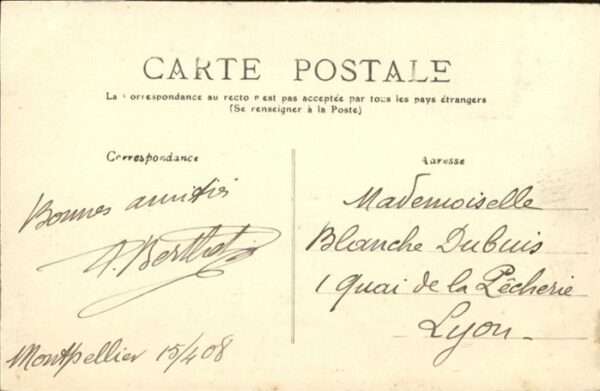 CARTE POSTALE
La Correspondance au recto n'est pas acceptée par tous les pays étrangers
(Se renseigner à la Poste)
Correspondance
Bonnes amitiés
Montpellier 15/4 08
Adresse
Mademoiselle
Blanche Dubuis
1 Quai de la Pêcherie
Lyon